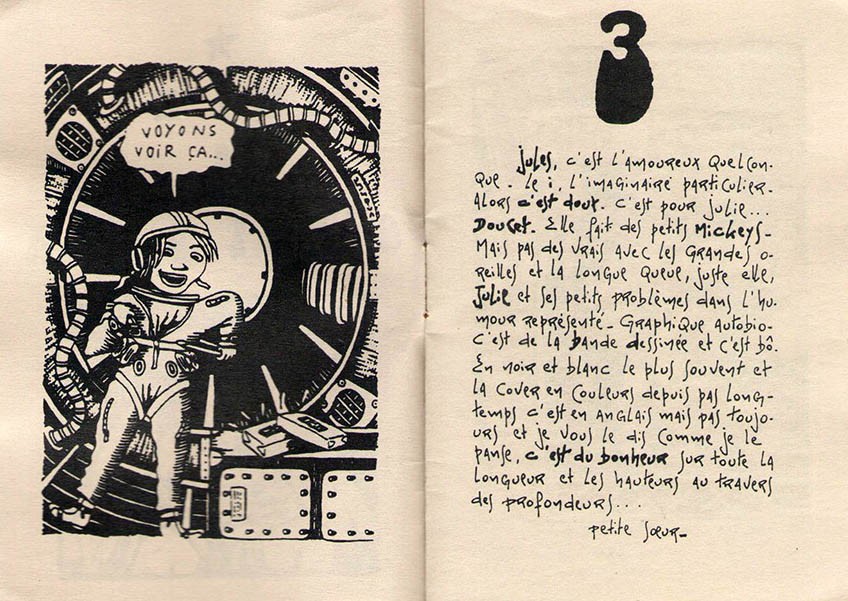 VOYONS
VOIR ÇA...
3
jules, c'est l'amoureux quelcon-
que - le i, l'imaginaire particulier.
Alors c'est doux. c'est pour julie...
Doucet. Elle fait des petits Mickeys -
Mais pas des vrais avec les grandes o-
reilles et la longue queue, juste elle,
Julie et ses petits problèmes dans l'hu-
mour représenté - graphique autobio -
c'est de la bande dessinée et c'est bô.
En noir et blanc le plus souvent et
la cover en couleurs depuis pas long-
temps c'est en anglais mais pas toujo-
urs et je vous le dis comme je le
panse, c'est du bonheur sur toute la
longueur et les hauteurs au travers
des profondeurs...
petite sœur -